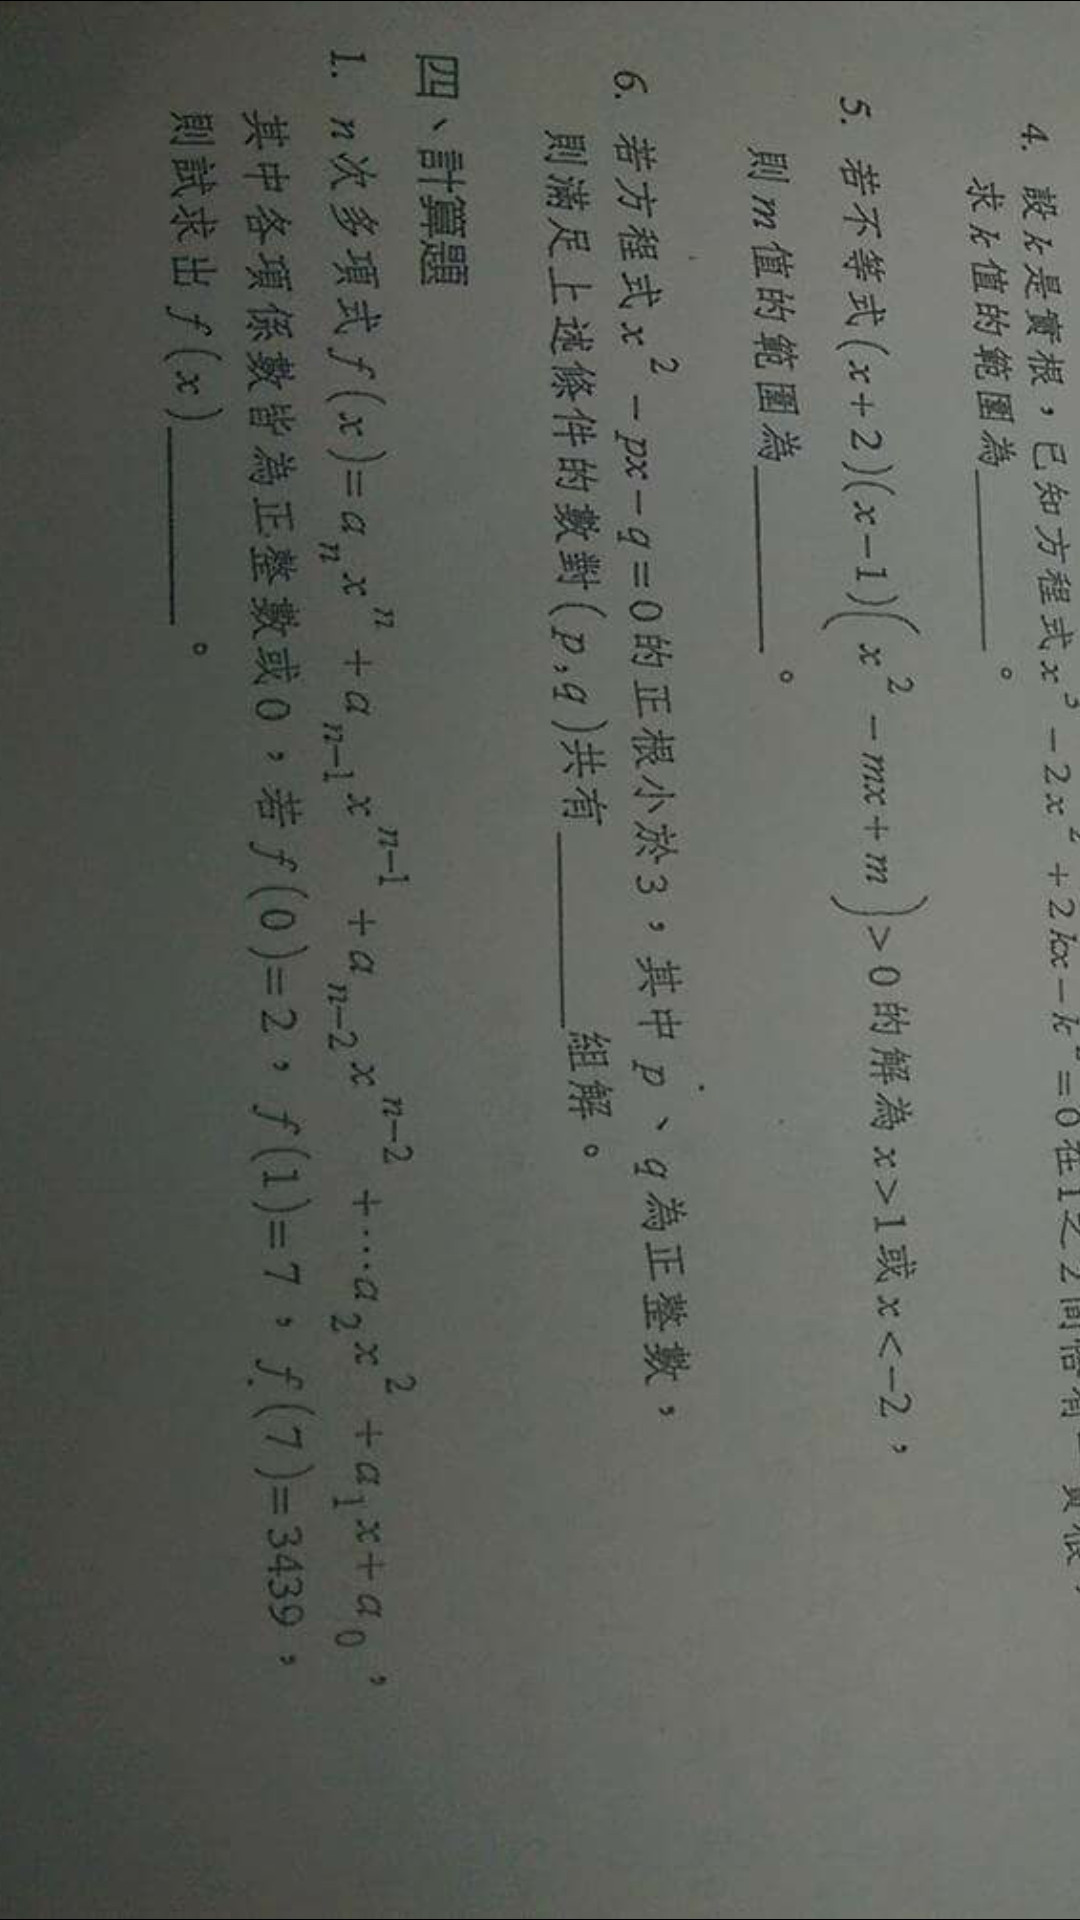 4. 設k是實根，已知方程式x³－2x²＋2kx－k²＝0在1之2間恰有
求k值的範圍為______。
5. 若不等式(x＋2)(x－1)(x²－mx＋m)＞0的解為x＞1或x＜－2，
則m值的範圍為______。
6. 若方程式x²－px－q＝0的正根小於3，其中p、q為正整數，
則滿足上述條件的數對(p,q)共有______組解。
四、計算題
1. n次多項式f(x)＝aₙxⁿ＋aₙ₋₁xⁿ⁻¹＋aₙ₋₂xⁿ⁻²＋⋯a₂x²＋a₁x＋a₀，
其中各項係數皆為正整數或0，若f(0)＝2，f(1)＝7，f(7)＝3439，
則試求出f(x)______。